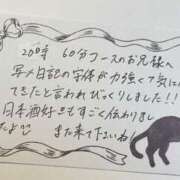 20時 60分コースのお兄様へ
写メ日記の字体が力強くて気に
てたと言われびっくりしました!!
日本酒好きもすごく伝わりまし
たよ また来て下さいね!